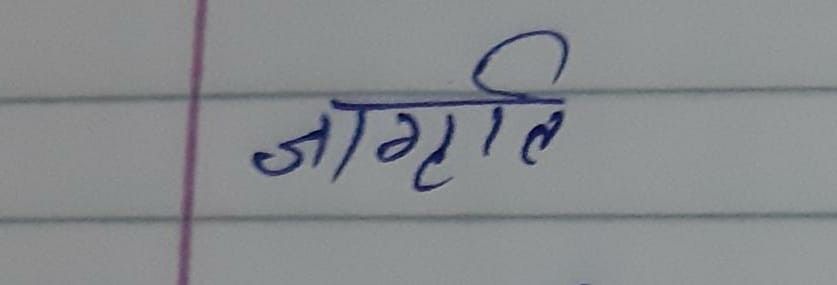 जागृति